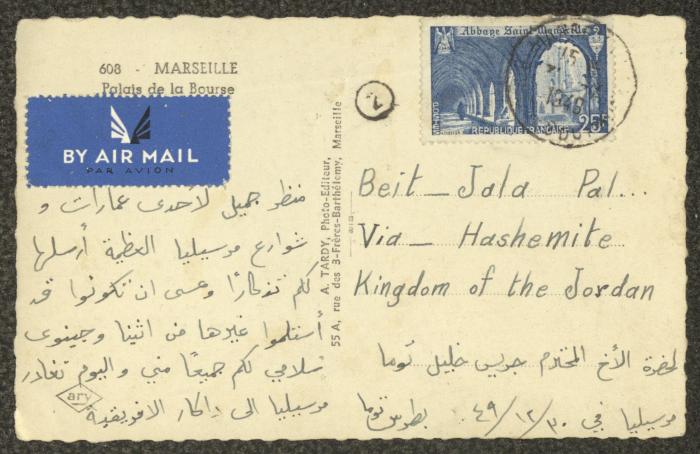 608 - MARSEILLE
Palais de la Bourse
BY AIR MAIL
PAR AVION
منظر جميل لأحدى عمارات و
شوارع مرسيليا العظيمة أرسلها
لكم تذكارًا وعسى ان تكونوا قد
أستلمتوا غيرها من اثينا وجينوى
سلامي لكم جميعًا مني واليوم نغادر
مرسيليا الى داكار الافريقية
ary
A. TARDY, Photo-Editeur,
55 A, rue des 3-Frères-Barthélemy, Marseille
Abbaye Saint Wandrille
25F
REPUBLIQUE FRANÇAISE
POSTES
1949
Beit-Jala Pal...
Via- Hashemite
Kingdom of the Jordan
لحضرة الأخ المحترم جريس خليل توما
مرسيليا في ٣٠/١٢/٤٩ بطرس توما